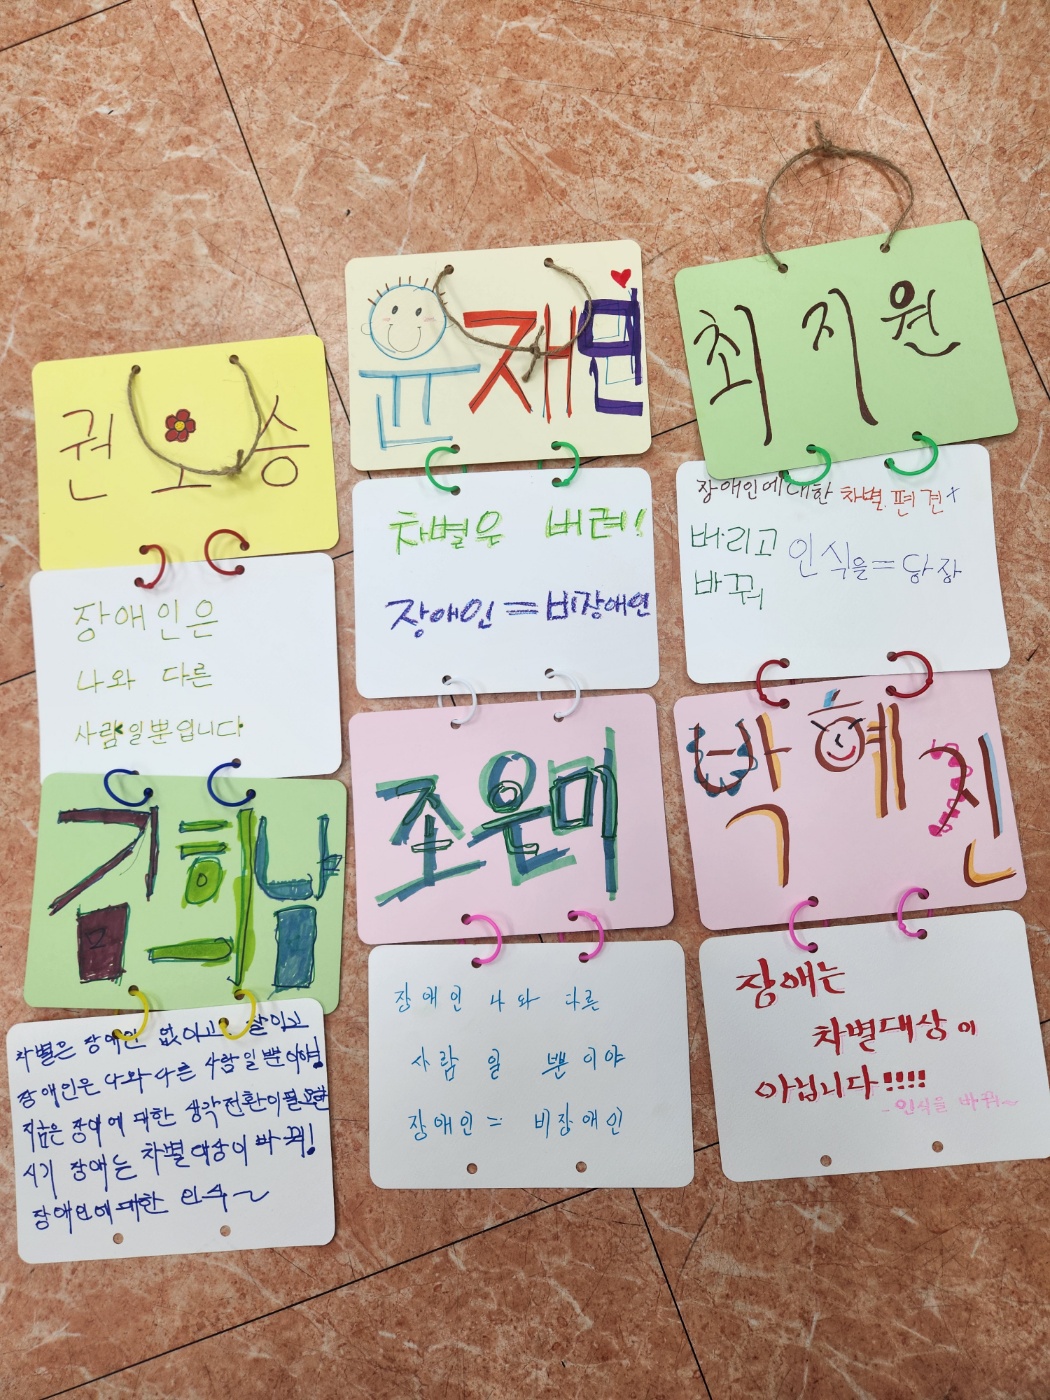 권오승
장애인은
나와 다른
사람일뿐입니다
김희남
차별은 장애인 없이고 살이고
장애인은 나와 다른 사람일뿐이해!
지금은 장애에 대한 생각전환이필요한
시기 장애는 차별대상이 바꿔!
장애인에대한 인식~
윤재민
차별은 버려!
장애인=비장애인
조은미
장애인 나와 다른
사람 일 뿐이야
장애인= 비장애인
최지원
장애인에대한 차별.편견+
버리고 인식을=당장
바꿔
박혜진
장애는
차별대상이
아닙니다!!!!
-인식을 바꿔~